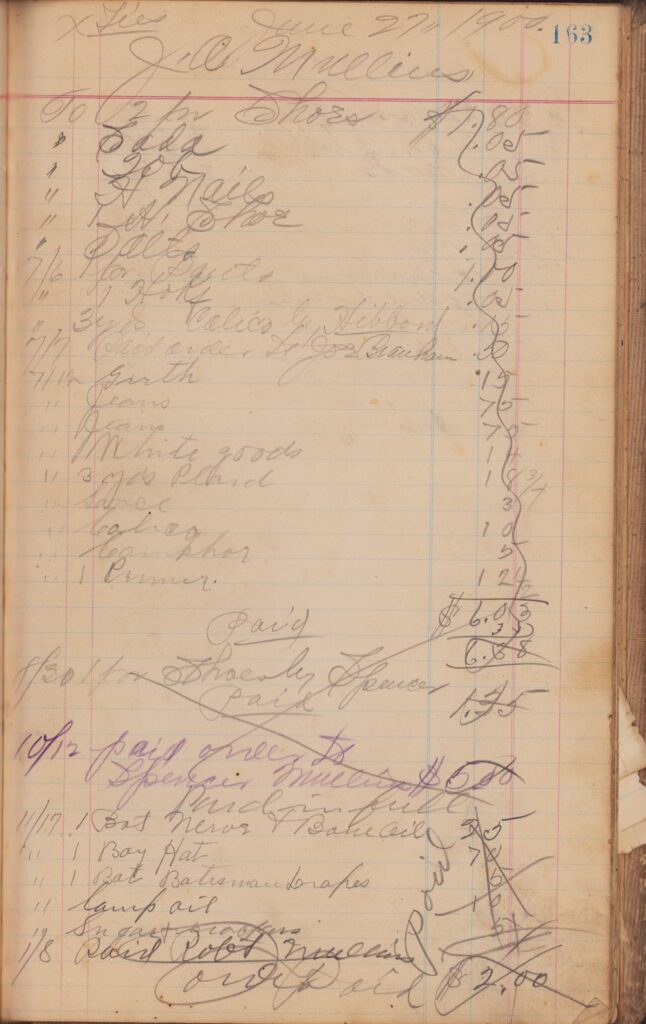 x Ties June 27" 1900. 163
J. A. Mullins
To 12 pr Shoes $1.80
" Soda .05
" .05
" H Nails .05
" 1 H. Shoe .05
" Salts .05
7/6 1 pr Pants 1.00
" 1 .05
" 3 yds Calico by Hibbard .15
7/7 Paid order to Joe Branham .50
7/12 Girth 15
" Jeans 75
" Jeans 75
" White goods 1
" 3 yds Plaid 1 3/4
" 3
" Calico 10
" Camphor 5
" 1 Primer. 12 1/2
$6.03
Paid 35
6.68
8/30 1 pr Shoes by Spencer 1.25
Paid
10/12 paid order to
Spencer Mullins $5.00
Paid in full
11/17 1 Bot Nerve & Bone Oil
" 1 Boy Hat
" 1 Bot Batesman drapes
" Lamp oil
" Sugar crackers
Paid
1/8 Paid Robt Mullins
order Paid $2.00